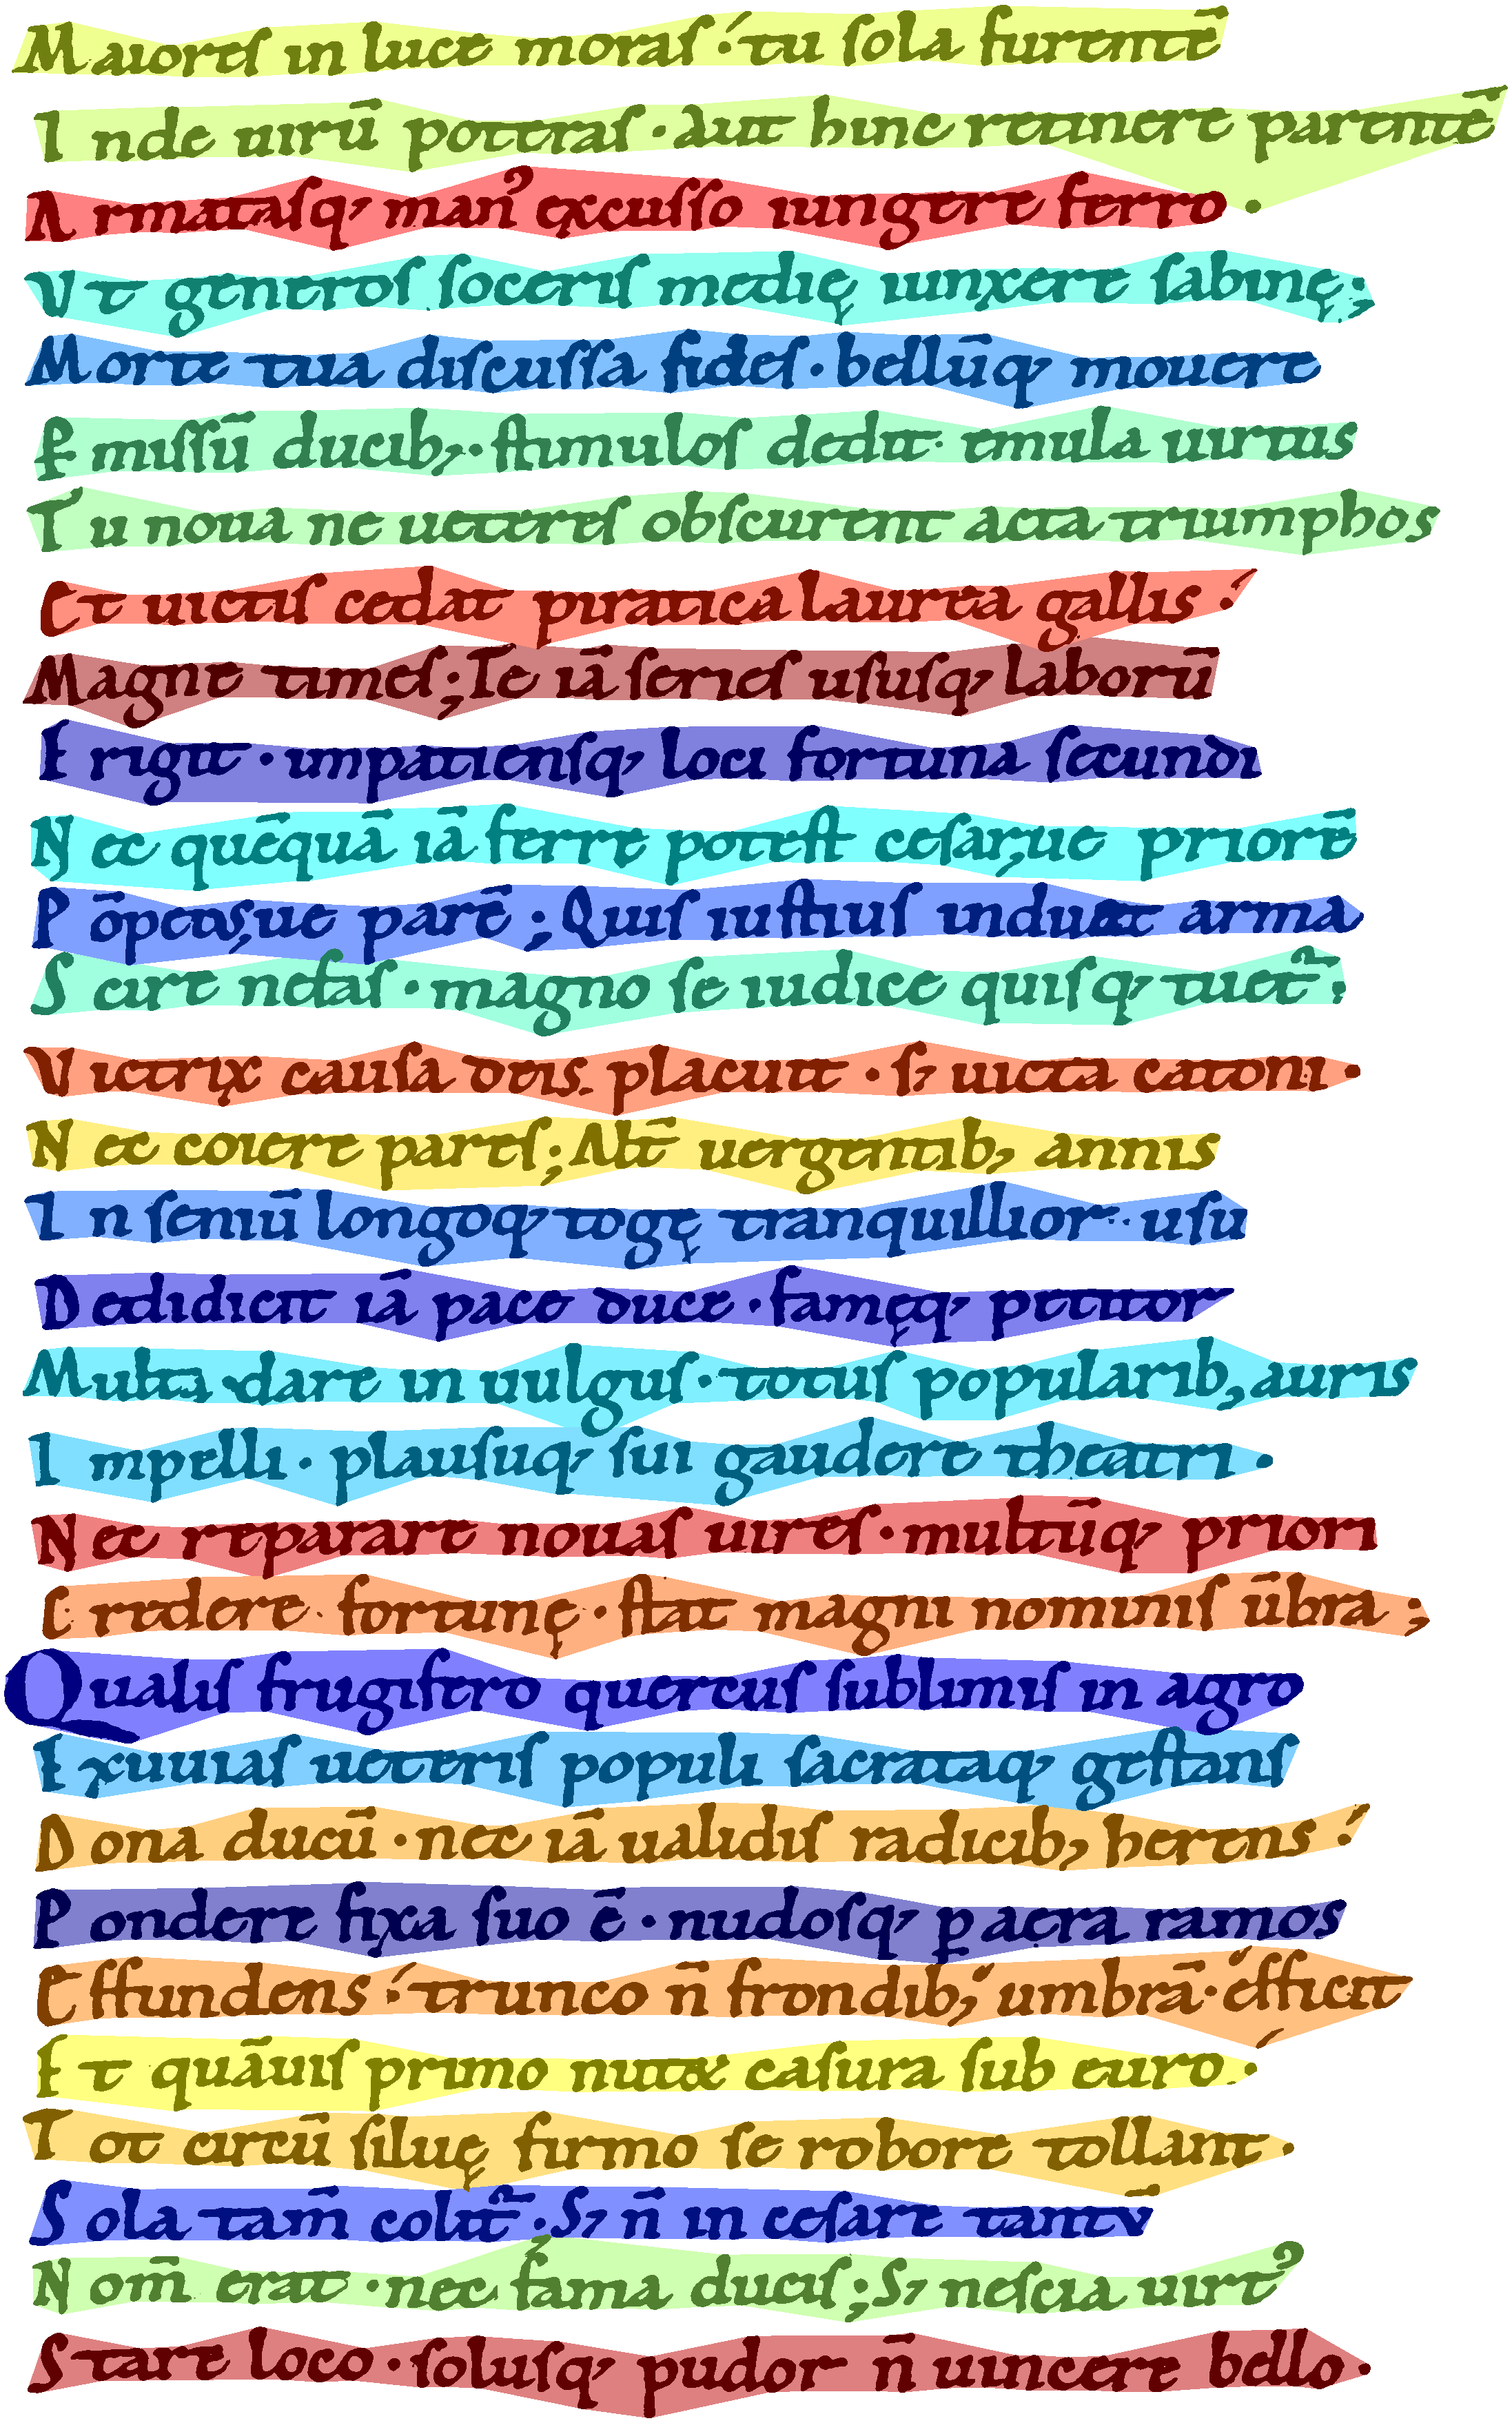 Maiores in luce moras .' tu sola furentē
Inde uirū poteras · aut hinc retinere parentē
Armatasq; man᾽ excusso iungere ferro ·
Vt generos soceris medię iunxere sabinę;
Morte tua discussa fides · bellūq; mouere
P̲missū ducib; · stimulos dedit · emula uirtus
Tu noua ne ueteres obscurent acta triumphos
Et uictis cedat piratica laurea gallis .'
Magne times; Te iā series ususq; laborū
Erigit · impatiensq; loci fortuna secundi
Nec quēquā iā ferre potest cesar,ue priorē
Pōpeius,ue parē; Quis iustius induat arma
Scire nefas · magno se iudice quisq; tuet᷑.
Victrix causa deis placuit · s; uicta catoni ·
Nec coiere pares; Alt̄ uergentib; annis
In seniū longoq; togę tranquillior usu
Dedidicit iā pace duce · famęq; petitor
Multa dare in uulgus · totus popularib; auris
Impelli · plausuq; sui gaudere theatri ·
Nec reparare nouas uires · multūq; priori
Credere fortunę · stat magni nominis ūbra;
Qualis frugifero quercus sublimis in agro
Exuuias ueteris populi sacrataq; gestans
Dona ducū · nec iā ualidis radicib; herens .'
Pondere fixa suo ē · nudosq; p̲ aera ramos
Effundens .' trunco n̄ frondib; umbrā · efficit
Et quāuis primo nutet casura sub euro .'
Tot circū siluę firmo se robore tollant ·
Sola tam̄ colit᷑ · S; n̄ in cesare tantū
Nom̄ erat · nec fama ducis; S; nescia uirt᾽
Stare loco · solusq; pudor n̄ uincere bello ·